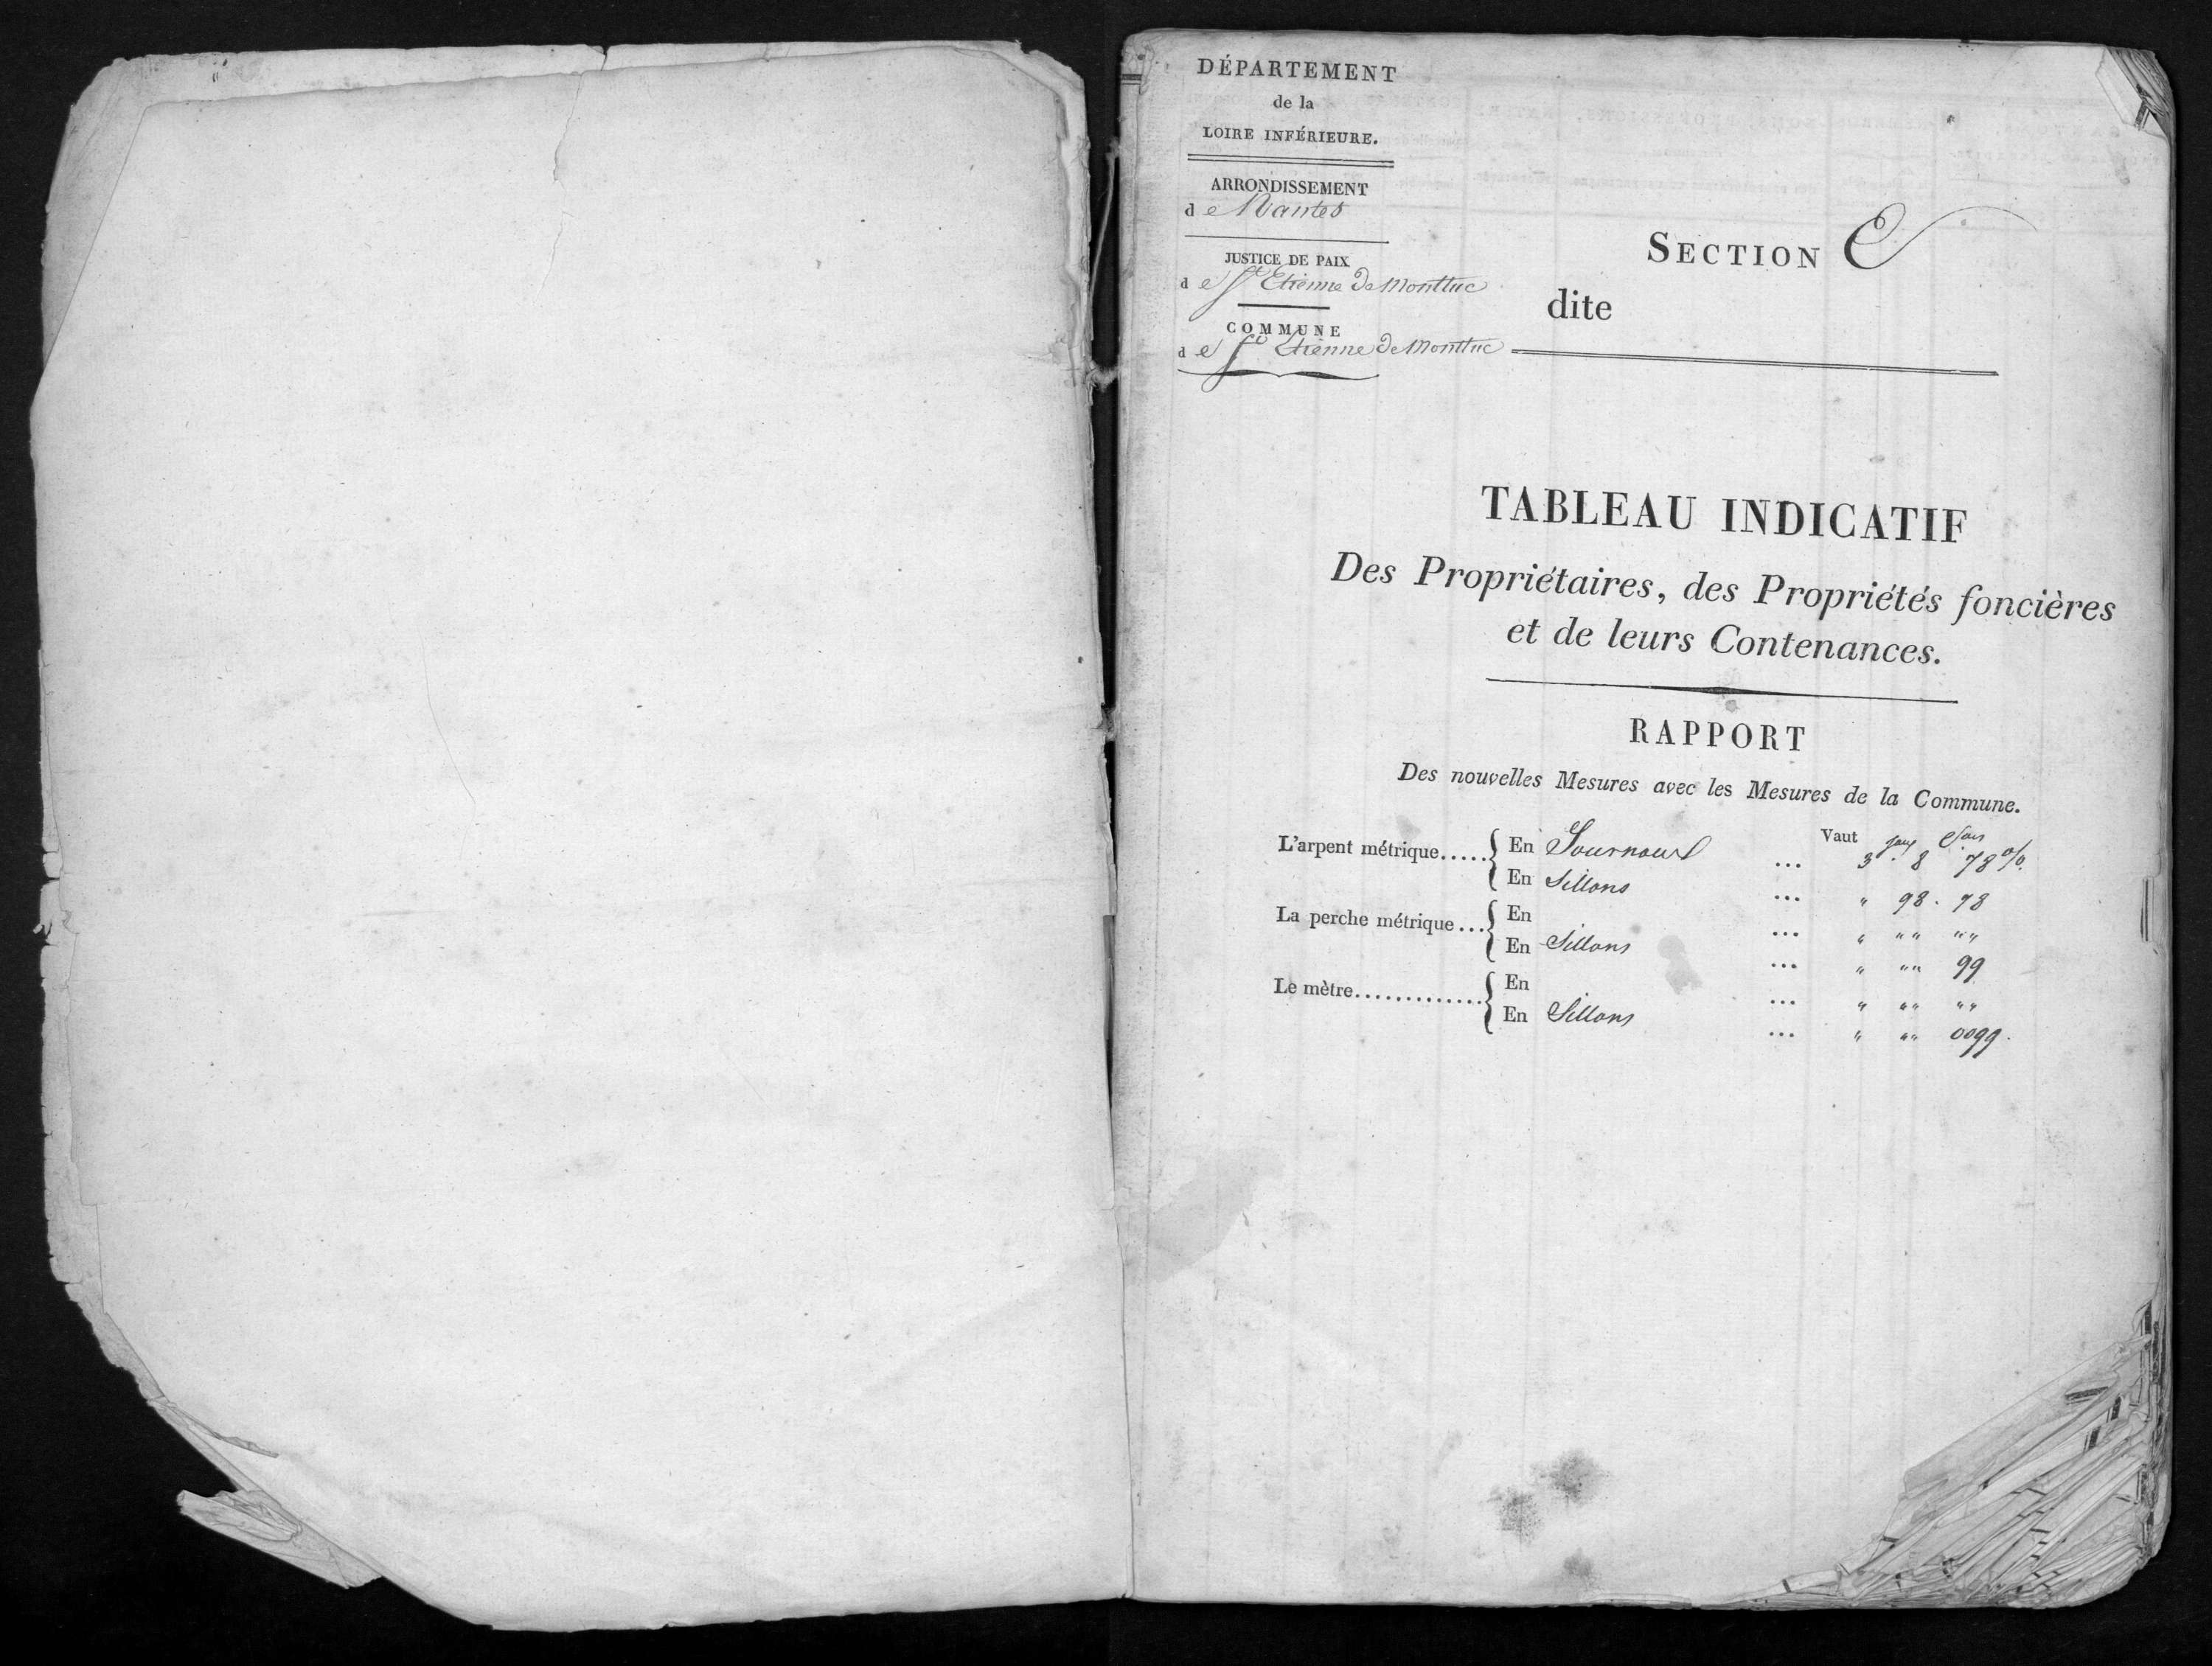 DÉPARTEMENT
de la
LOIRE INFÉRIEURE.
ARRONDISSEMENT
de Nantes
JUSTICE DE PAIX
de St Etienne De Montluc
COMMUNE
de St Etienne De Montluc
SECTION
dite
TABLEAU INDICATIF
Des Propriétaires, des Propriétés foncières
et de leurs Contenances.
RAPPORT
Des nouvelles Mesures avec les Mesures de la Commune.
Vaut
L'arpent métrique..... En Journaux ... 3 . 8 78 %.
En Sillons ... " 98 . 78
La perche métrique... En ... " "" ""
En Sillons ... " "" 99
Le mètre............. En ... " "" ""
En Sillons ... " "" 0099.